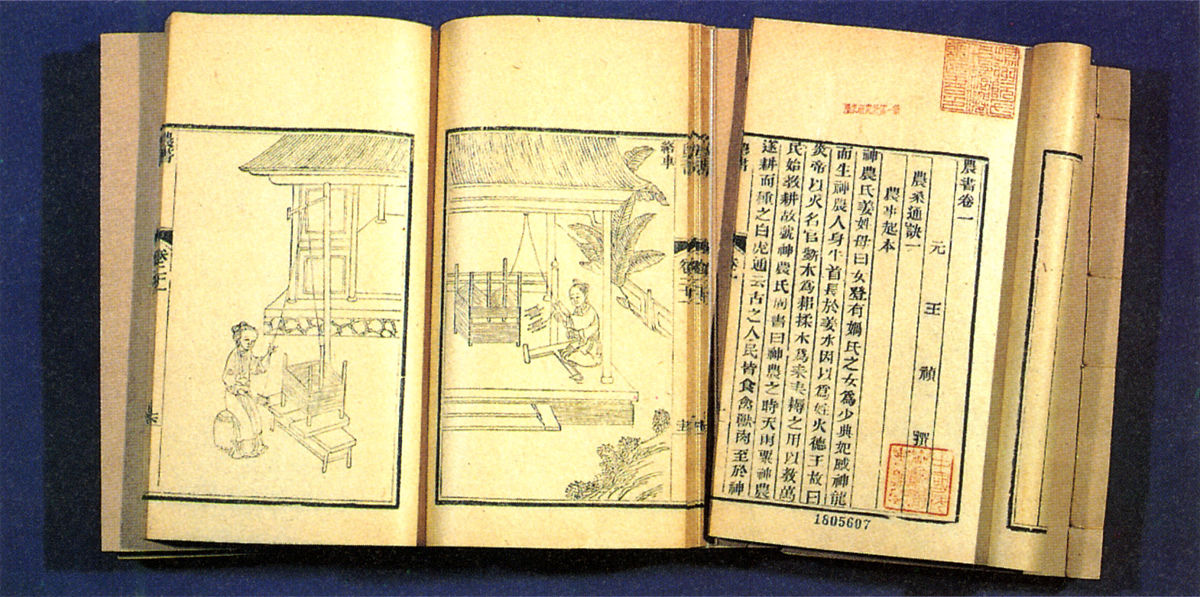 農書卷一
元 王 禎 撰
農桑通訣一
農事起本
神農氏姜姓母曰女登有媧氏之女爲少典妃感神龍
而生神農人身牛首長於姜水因以爲姓火德王故曰
炎帝以火名官斲木爲耜揉木爲耒耒耨之用以敎萬
民始敎耕故號神農氏周書曰神農之時天雨粟神農
遂耕而種之白虎通云古之人民皆食禽獸肉至於神
農書
卷一
1805607
絡車
農書